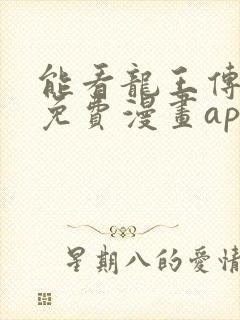 能看龍王傳
免費漫畫ap
星期八的愛情